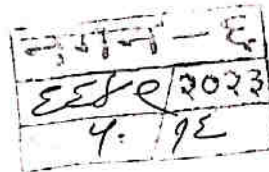 न.न.न - ६
६६४९/२०२३
५. /१६